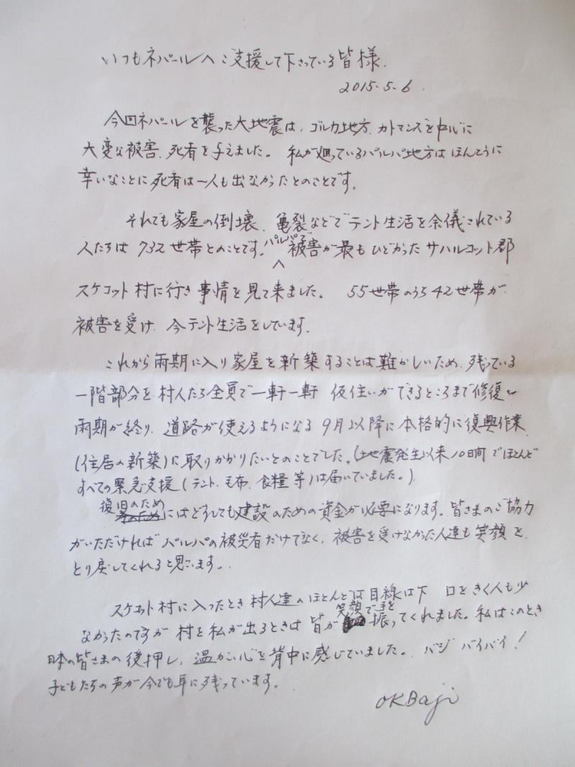 いつもネパールへご支援して下さっている皆様
2015.5.6.
今回ネパールを襲った大地震は、ゴルカ地方、カトマンズを中心に
大変な被害、死者を与えました。私が廻っているパルパ地方はほんとうに
幸いなことに死者は一人も出なかったとのことです。
それでも家屋の倒壊、亀裂などでテント生活を余儀されている
人たちは732世帯とのことです。パルパで被害が最もひどかったサハルコット郡
スケコット村に行き事情を見て来ました。55世帯のうち42世帯が
被害を受け、今テント生活をしています。
これから雨期に入り家屋を新築することは難かしいため、残っている
一階部分を村人たち全員で一軒一軒 仮住いができるところまで修復し
雨期が終り、道路が使えるようになる9月以降に本格的に復興作業
(住居の新築)に取りかかりたいとのことでした。(地震発生以来10日間でほとんど
すべての緊急支援(テント、毛布、食糧等)は届いていました。)
復旧のためにはどうしても建設のための資金が必要になります。皆さまのご協力
がいただければパルパの被災者だけでなく、被害を受けなかった人達も笑顔を
とり戻してくれると思います。
スケコット村に入ったとき村人達のほとんどは目線は下 口をきく人も少
なかったのですが村を私が出るときは皆が笑顔で手を振ってくれました。私はこのとき
日本の皆さまの後押し、温かい心を背中に感じていました。バジ バイバイ!
子どもたちの声が今でも耳に残っています。
OKBaji